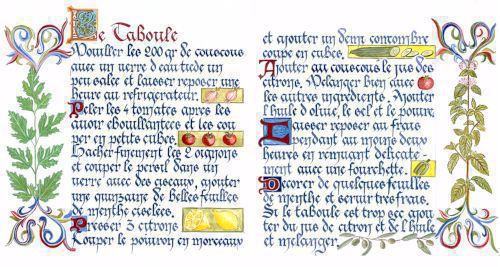 Le Taboule
Mouiller les 200 gr de couscous
avec un verre d'eau tiede un
peu salee et laisser reposer une
heure au refrigerateur.
Peler les 4 tomates apres les
avoir ebouillantees et les cou
per en petits cubes.
Hacher finement les 2 oignons
et couper le persil dans un
verre avec des ciseaux, ajouter
une quinzaine de belles feuilles
de menthe ciselees.
Presser 3 citrons
Couper le poivron en morceaux
et ajouter un demi concombre
coupe en cubes.
Ajouter au couscous le jus des
citrons. Melanger bien avec
les autres ingredients. Ajouter
l'huile d'olive, le sel et le poivre.
Laisser reposer au frais
pendant au moins deux
heures en remuant delicate-
ment avec une fourchette.
Decorer de quelques feuilles
de menthe et servir tres frais.
Si le taboule est trop sec ajou
ter du jus de citron et de l'huile
et melanger.